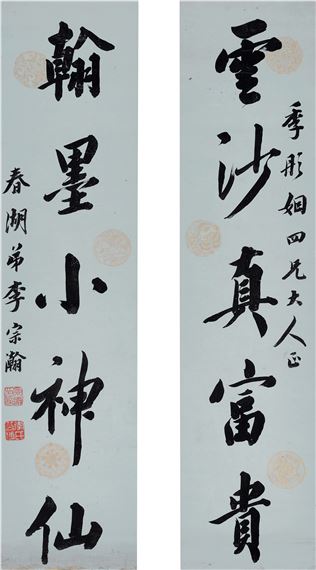 季彤姻四兄大人正
雲沙真富貴
翰墨小神仙
春湖弟李宗瀚